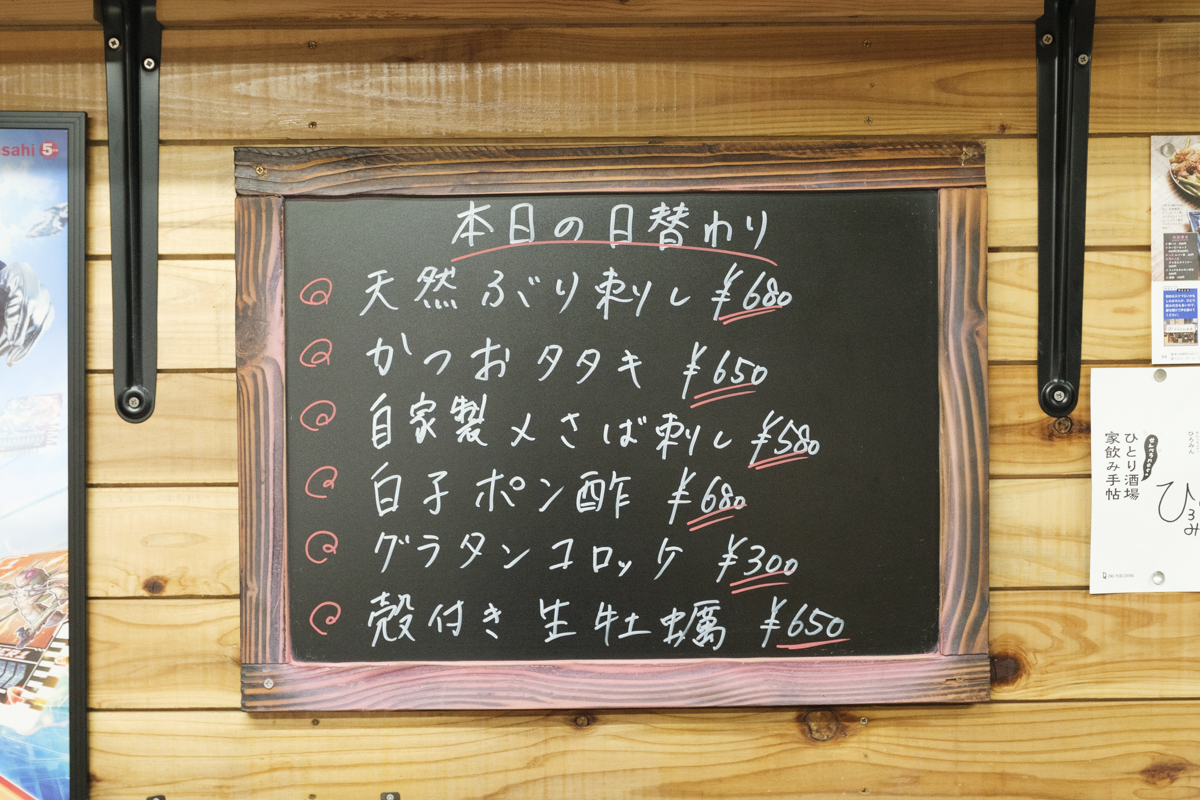 本日の日替わり
天然ぶり刺し ¥680
かつおタタキ ¥650
自家製〆さば刺し ¥580
白子ポン酢 ¥680
グラタンコロッケ ¥300
殻付き生牡蠣 ¥650
sahi 5
ひとり酒場
家飲み手帖
ひろみん
ひ
ろ
み